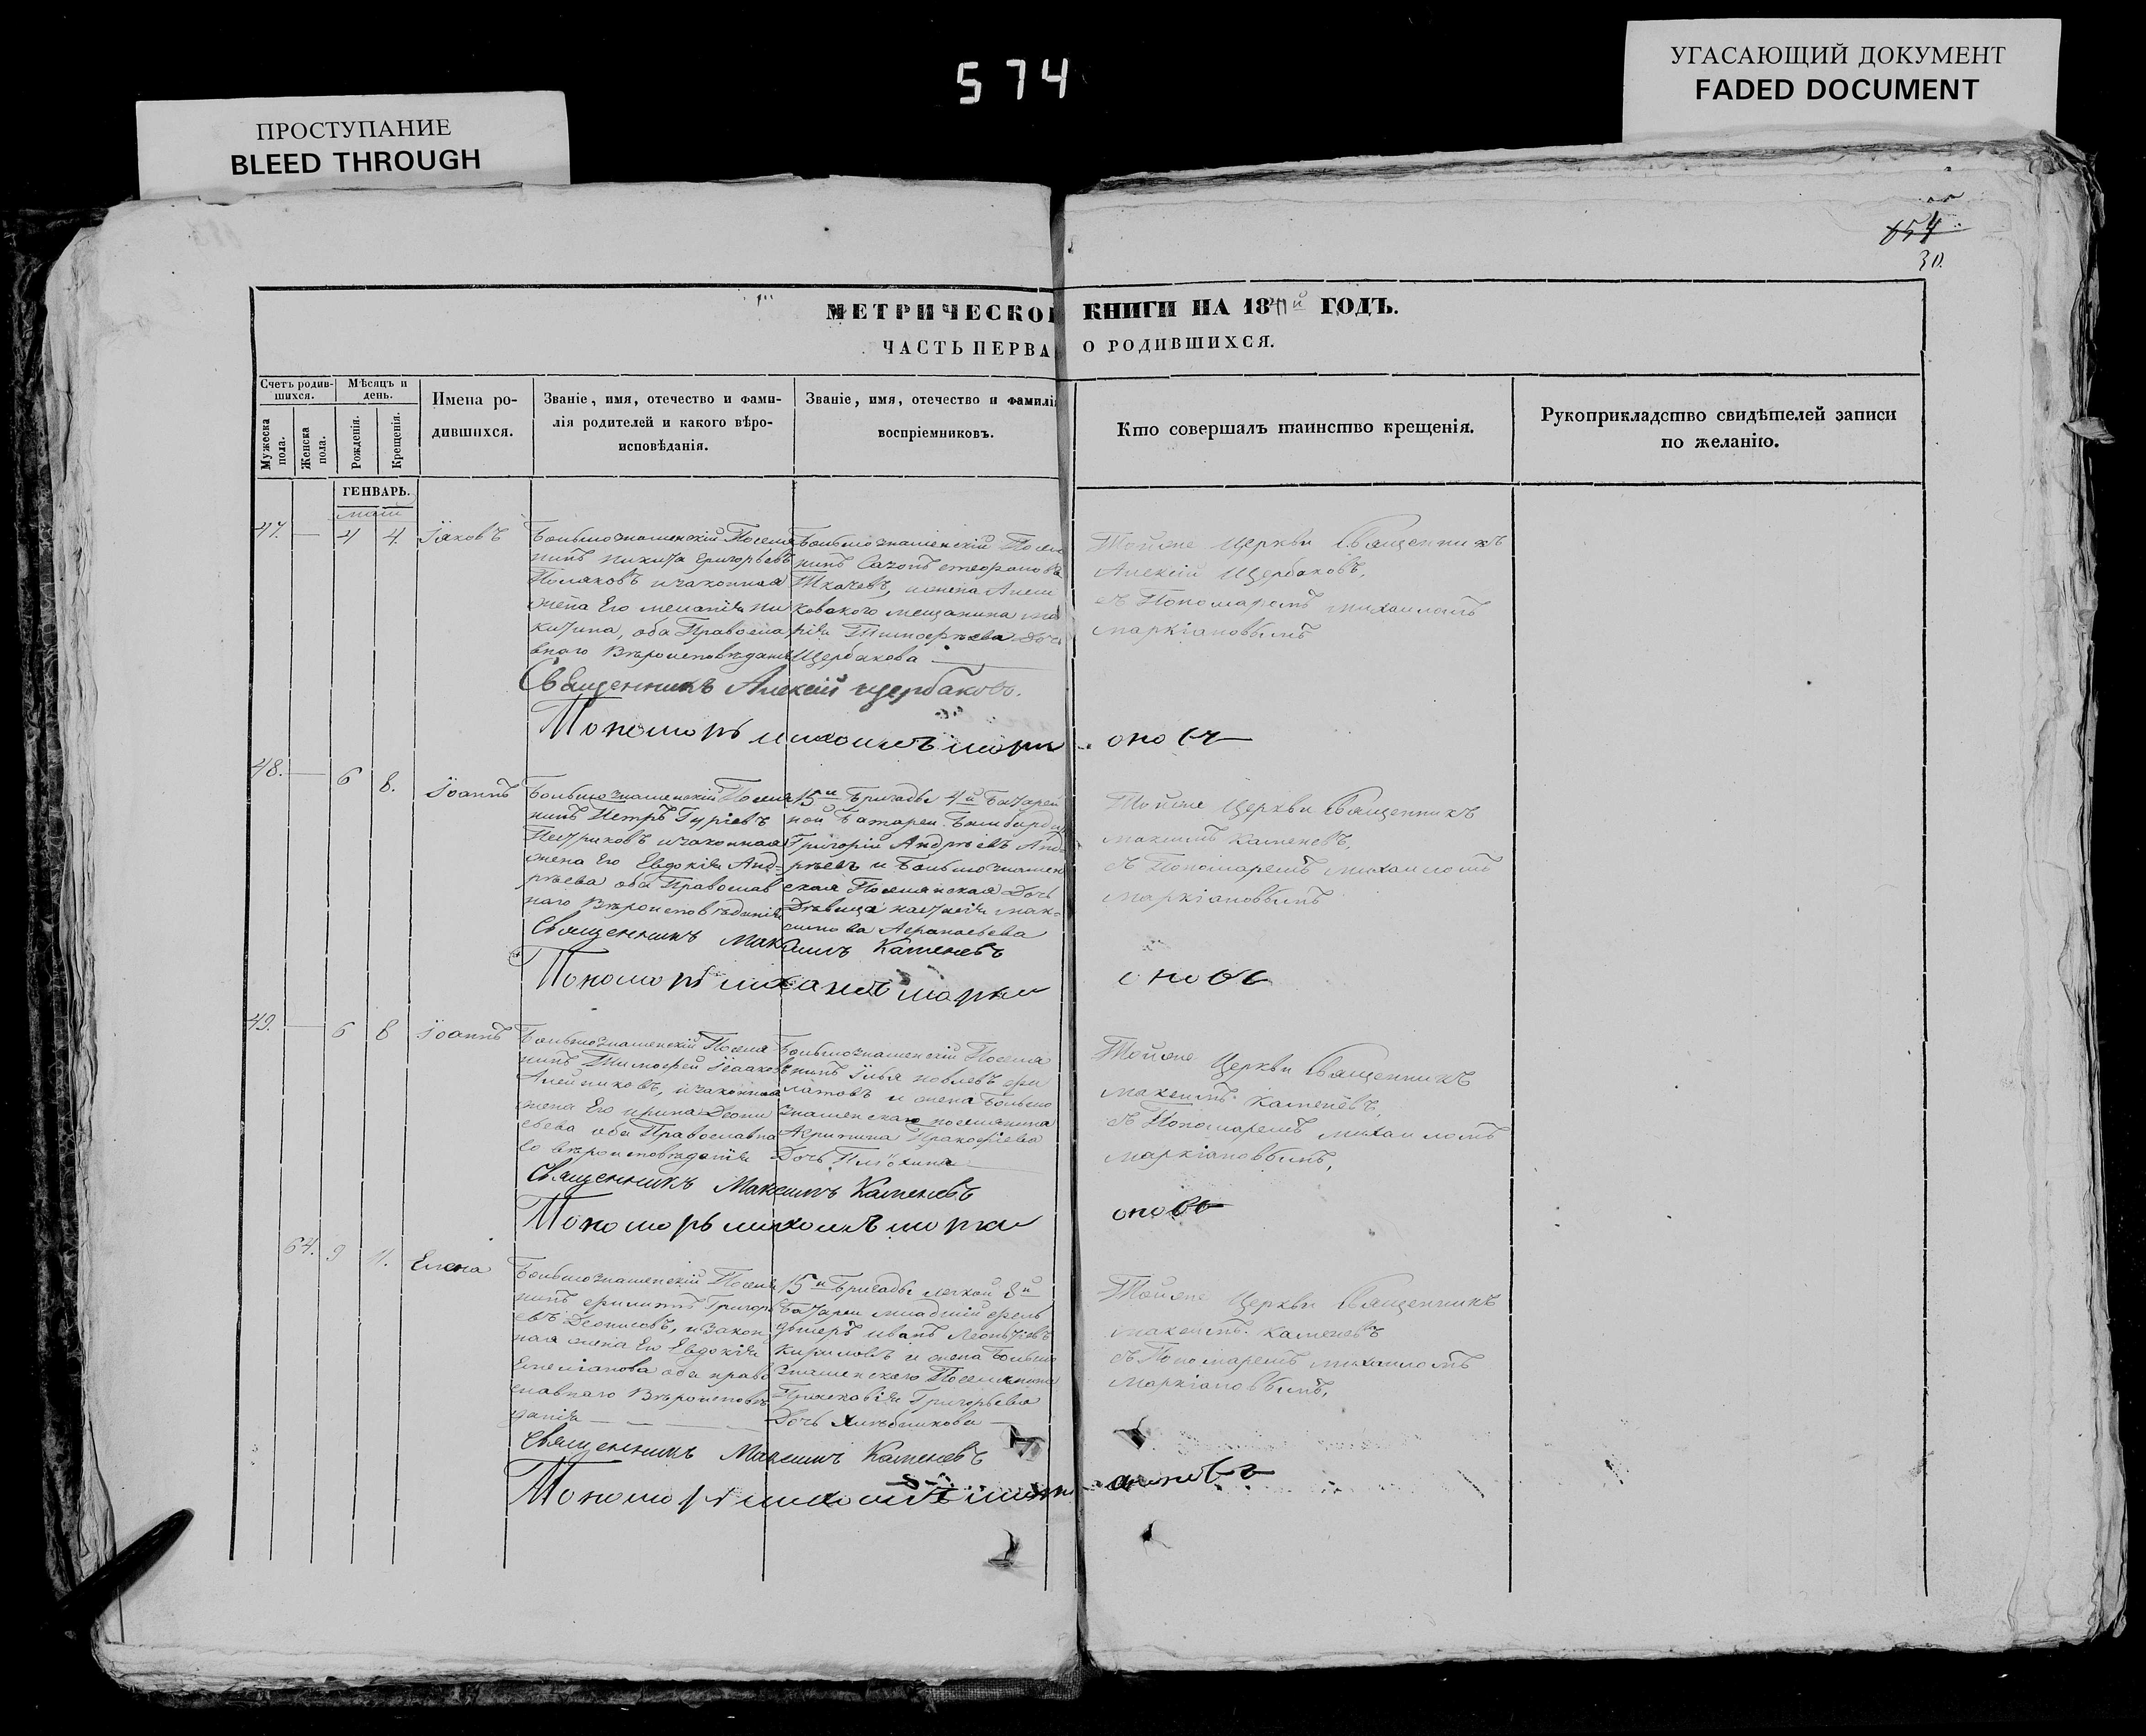 574
ПРОСТУПАНИЕ
BLEED THROUGH
УГАСАЮЩИЙ ДОКУМЕНТ
FADED DOCUMENT
654
30.
МЕТРИЧЕСКО КНИГИ НА 1841й ГОДЪ.
ЧАСТЬ ПЕРВА О РОДИВШИХСЯ.
Счетъ родив-
шихся.
Мужеска
пола.
Женска
пола.
Мѣсяцъ и
день.
Рожденія.
Крещенія.
Имена ро-
дившихся.
Званіе, имя, отечество и фами-
лія родителей и какого вѣро-
исповѣданія.
Званіе, имя, отечество и фамилі
воспріемниковъ.
Кто совершалъ таинство крещенія.
Рукоприкладство свидѣтелей записи
по желанію.
ГЕНВАРЬ.
маій
47. — 4 4. Іаковъ
Большознаменскій Поселя
нинъ Никита Григорьевъ
Поляковъ и законная
жена Его Меланія Ни
китина, оба Правосла
внаго Вѣроисповѣданія
Большознаменскій Поселя
нинъ Стефановъ
Ткачевъ, и жена
ковскаго мещанина
Тимофеева Дочь
Щербакова
Тойже Церкви Священникъ
Алексій Щербаковъ,
съ Пономаремъ Михаиломъ
Маркіановымъ
Священникъ Алексій Щербаковъ.
Пономорь
оновъ
48. — 6 8. Іоаннъ
Большознаменскій Поселя
нинъ Петръ Гуріевъ
и законная
жена Его Евдокія Анд-
рѣева оба Православ
наго Вѣроисповѣданія
15й Бригады 4й Батарей
ной Батареи Бомбардир
Григорій Андрѣевъ Анд-
рѣевъ и Большознамен
ская Поселянская Дочь
Дѣвица Настасія Мак-
симова Афанасьева
Тойже Церкви Священникъ
Максимъ Каменевъ,
съ Пономаремъ Михаиломъ
Маркіановымъ
Священникъ Максимъ Каменевъ
Пономорь
оновъ
49. — 6 8 Іоаннъ
Большознаменскій Поселя
нинъ Тимофей Ісааковъ
Алейниковъ, и законная
жена Его Ирина Деони
сьева оба Православна
го вѣроисповѣданія
Большознаменскій Поселя
нинъ Илья Павлевъ Фи
латовъ и жена Больше
знаменскаго поселянина
Агрипина Пракофіева
Дочь
Тойже Церкви Священникъ
Максимъ Каменевъ,
съ Пономаремъ Михаиломъ
Маркіановымъ,
Священникъ Максимъ Каменевъ
Пономорь
оновъ
64. 9 11. Елена
Большознаменскій Поселя
нинъ Филипъ Григорь
евъ Деонисовъ, и закон
ная жена Его Евдокія
Емеліанова оба право
славнаго Вѣроисповѣ
данія
15й Бригады легкой 8й
Батареи младшій фель
дшеръ Иванъ Леонтіевъ
Кириловъ и жена Больше
знаменскаго Поселянина
Прасковія Григорьева
Дочь Хлѣбникова
Тойже Церкви Священникъ
Максимъ Каменевъ
съ Пономаремъ Михаиломъ
Маркіановымъ,
Священникъ Максимъ Каменевъ
Пономорь